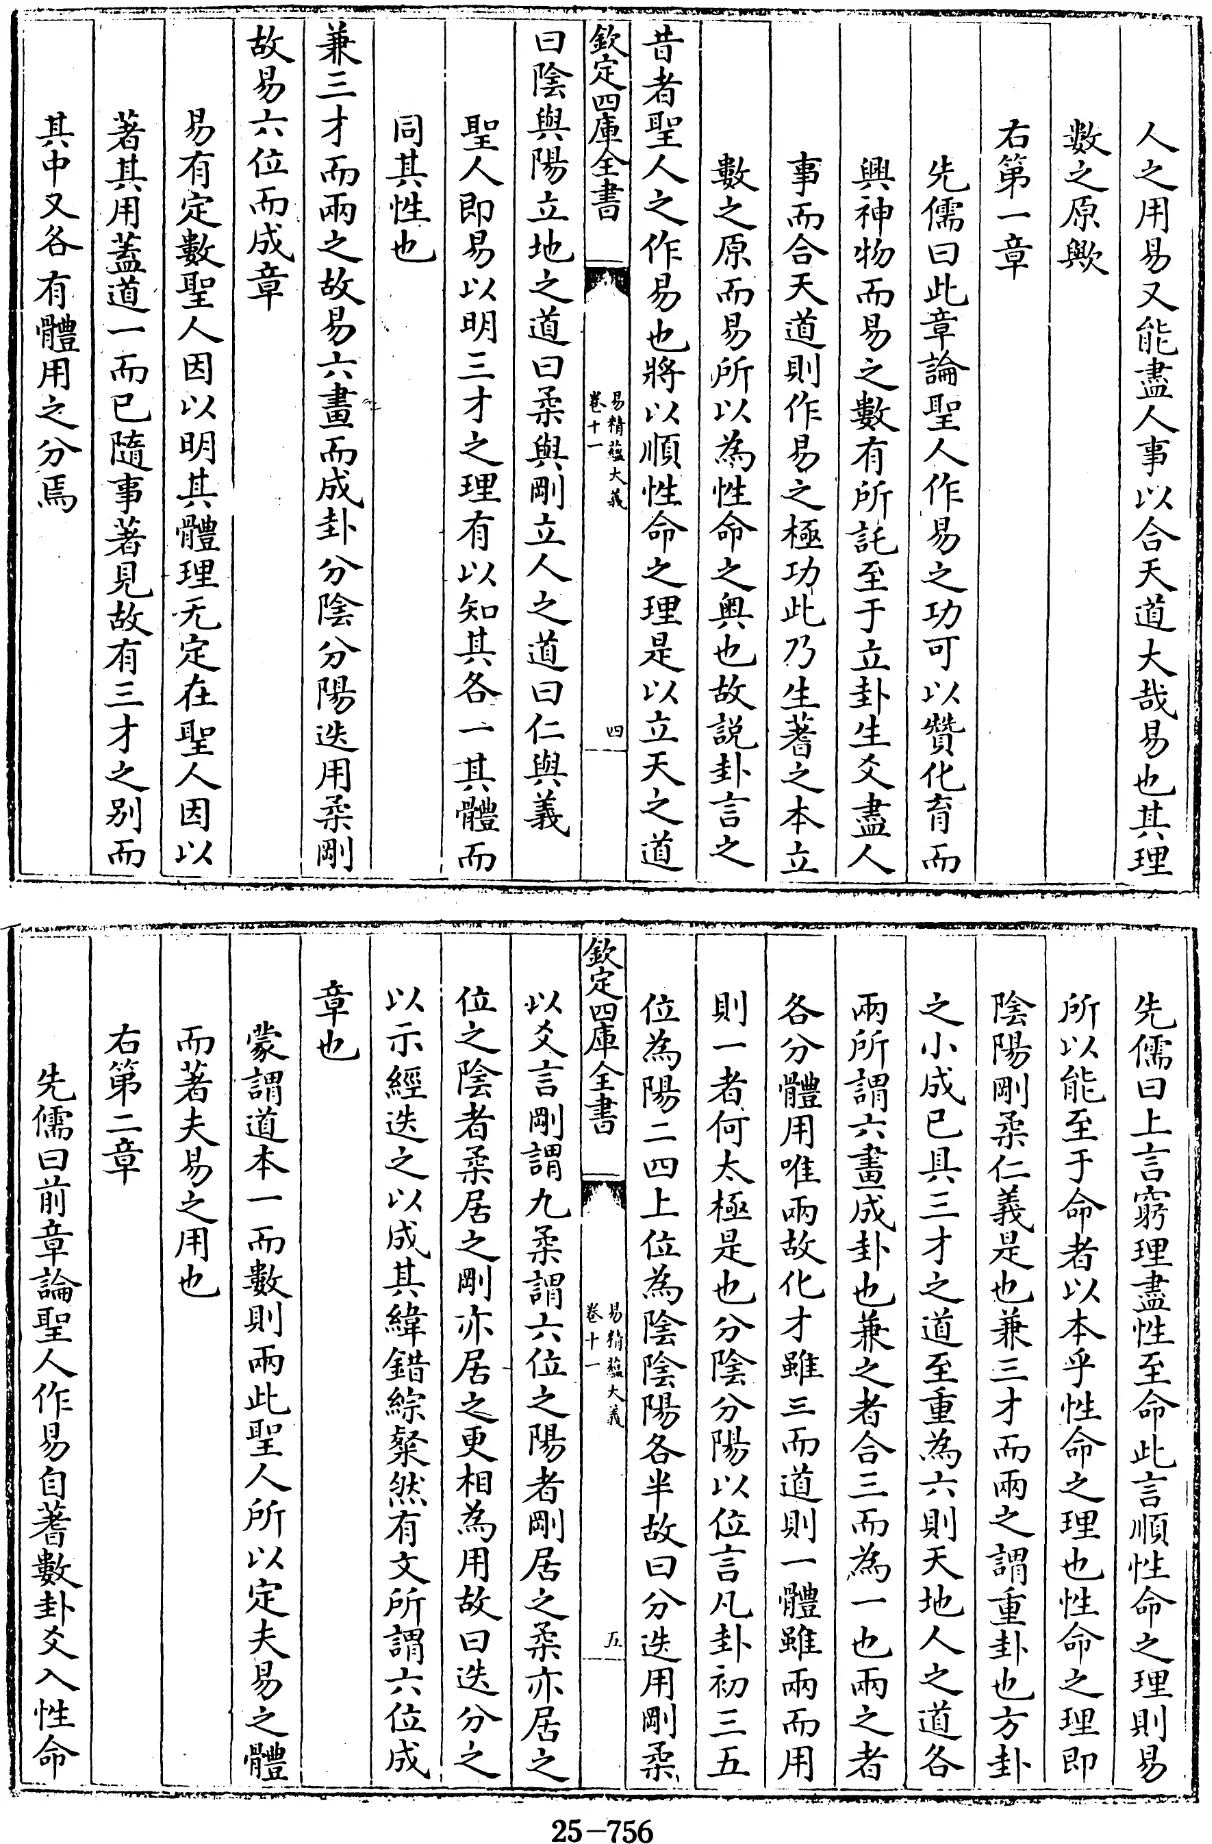 人之用易又能盡人事以合天道大哉易也其理
數之原歟
右第一章
先儒曰此章論聖人作易之功可以贊化育而
興神物而易之數有所託至于立卦生爻盡人
事而合天道則作易之極功此乃生蓍之本立
數之原而易所以為性命之奥也故說卦言之
昔者聖人之作易也將以順性命之理是以立天之道
欽定四庫全書
易精蘊大義
卷十一
四
曰陰與陽立地之道曰柔與剛立人之道曰仁與義
聖人即易以明三才之理有以知其各一其體而
同其性也
兼三才而兩之故易六畫而成卦分陰分陽迭用柔剛
故易六位而成章
易有定數聖人因以明其體理无定在聖人因以
著其用蓋道一而已隨事著見故有三才之别而
其中又各有體用之分焉
先儒曰上言窮理盡性至命此言順性命之理則易
所以能至于命者以本乎性命之理也性命之理即
陰陽剛柔仁義是也兼三才而兩之謂重卦也方卦
之小成已具三才之道至重為六則天地人之道各
兩所謂六畫成卦也兼之者合三而為一也兩之者
各分體用唯兩故化才雖三而道則一體雖兩而用
則一者何太極是也分陰分陽以位言凡卦初三五
位為陽二四上位為陰陰陽各半故曰分迭用剛柔
欽定四庫全書
易精蘊大義
卷十一
五
以爻言剛謂九柔謂六位之陽者剛居之柔亦居之
位之陰者柔居之剛亦居之更相為用故曰迭分之
以示經迭之以成其緯錯綜粲然有文所謂六位成
章也
蒙謂道本一而數則兩此聖人所以定夫易之體
而著夫易之用也
右第二章
先儒曰前章論聖人作易自蓍數卦爻入性命
25-756